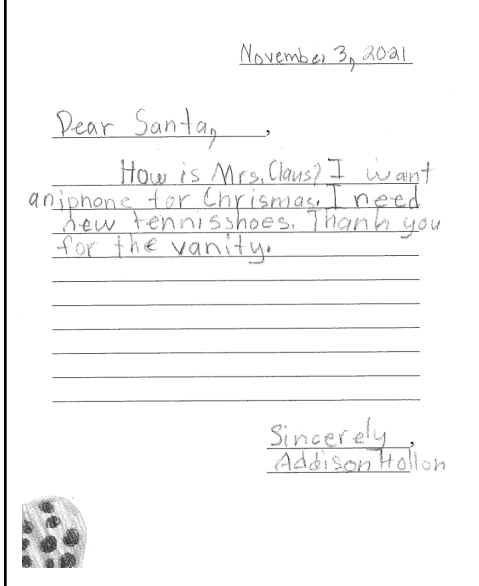 November 3, 2021
Dear Santa, ,
How is Mrs. Claus? I want
an iphone for Chrismas. I need
new tennisshoes. Thank you
for the vanity.
Sincerely ,
Addison Hollon